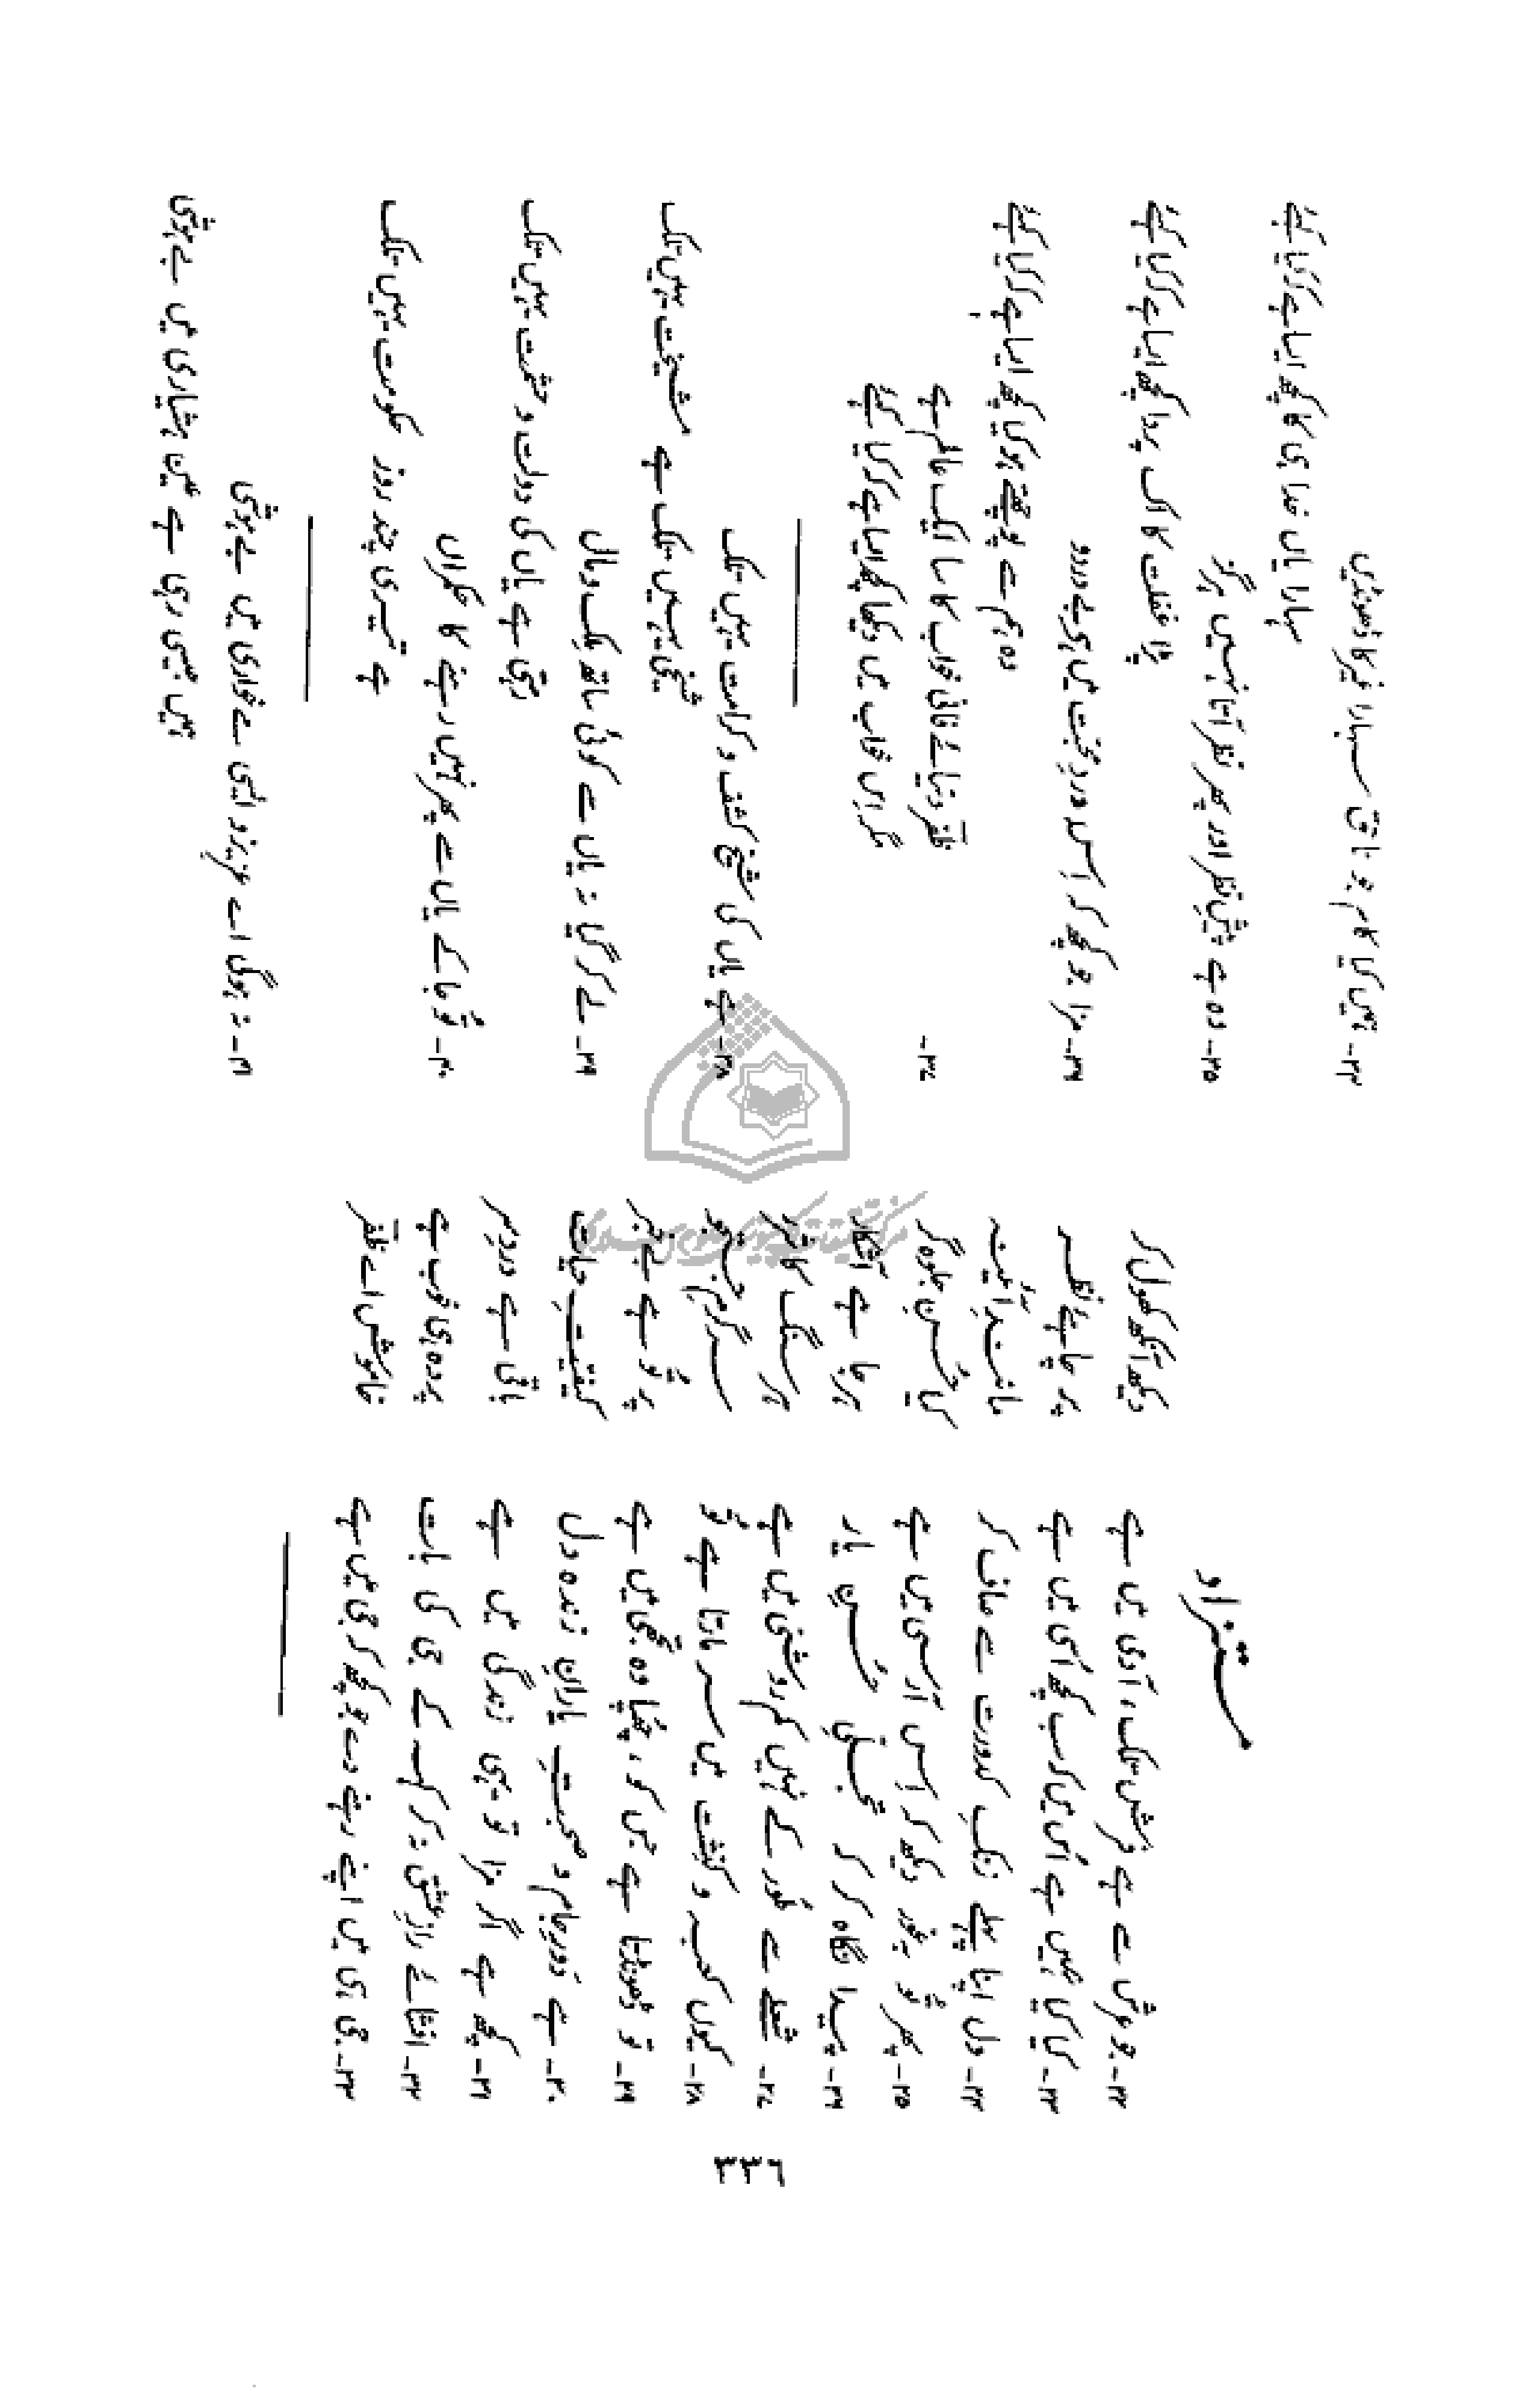 ۳۳۶
مستزاد
۲۲- جو عرش سے ہے فرش تلک، آدمی میں ہے دیکھ آنکھ کھول کر
۲۳- کیا کیا نہیں ہے اُس میں کہ سب کچھ اُسی میں ہے پر چاہیے نظر
۲۴- دل اپنا پہلے زنگِ کدورت سے صاف کر مانندِ آئینہ
۲۵- پھر تُو بغور دیکھ کہ اِس آرسی میں ہے کیا حُسن جلوہ گر
۲۶- پیدا نگاہ کر کہ تجلیِ حُسنِ یار ہر جا ہے آشکار
۲۷- شعلے سے طُور کے نہیں کم روشنی میں ہے ہر سنگ کا شرر
۲۸- کیوں کعبہ و کنشت میں سر مارتا ہے تُو سرگرمِ جستجو
۲۹- تو ڈھونڈتا ہے جس کو، چھپا وہ تجھی میں ہے پر تُو ہے بے خبر
۳۰- ہے دورِ جام و صحبتِ یارانِ زندہ دل کیفیتِ حیات
۳۱- کچھ ہے اگر مزا تو یہی زندگی میں ہے باقی ہے دردِ سر
۳۲- افشائے رازِ عشق نہ کر کہہ کے جی کی بات پردہ ہی خوب ہے
۳۳- جی ہی میں اپنے رہنے دے جو کچھ کہ جی میں ہے خاموشی اے ظفرؔ
۳۴- ہمیں کیا کام جو ناحق سہارا غیر کا ڈھونڈیں
سہارا یاں خدا ہی کا کچھ ایسا ہے کہ کیا کہیے
۳۵- وہ ہے پیشِ نظر اور پھر نظر آتا نہیں ہرگز
پڑا غفلت کا اک پردا کچھ ایسا ہے کہ کیا کہیے
۳۶- مزا جو کچھ کہ اس دردِ محبت میں ہے بے دردو
وہ ہم سے پوچھتے ہو کیا کچھ ایسا ہے کہ کیا کہیے
۳۷- ظفرؔ دنیائے فانی خواب کا سا ایک عالم ہے
مگر اس خواب میں دیکھا کچھ ایسا ہے کہ کیا کہیے
۳۸- ہے یاں کی شیخ کشف و کرامت یہیں تلک
شیخی یہیں تلک ہے مشیخت یہیں تلک
۳۹- لے کر گیا نہ یاں سے کوئی ساتھ ملک و مال
رہتی ہے یاں کی دولت و حشمت یہیں تلک
۴۰- تُو جا کے یاں سے پھر نہیں رہنے کا حکمراں
ہے تیری چند روز حکومت یہیں تلک
۴۱- نہ ہوگی اے ایسی میں بے ہوشی
ہمیں جتنی رہی ہے میں بے ہوشی